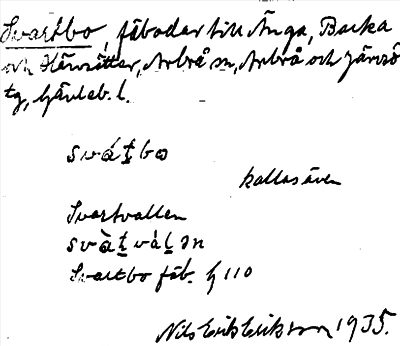 Svartbo, fäbodar till Änga, Backa
och Härsätter, Arbrå sn, Arbrå och Järvsö
tg, Gävleb. l.
svát̠bɷ
kallas även
Svartvallen
svàt̠vàḷən
Svartbo fäb. G 110
Nils Erik Eriksson 1935.